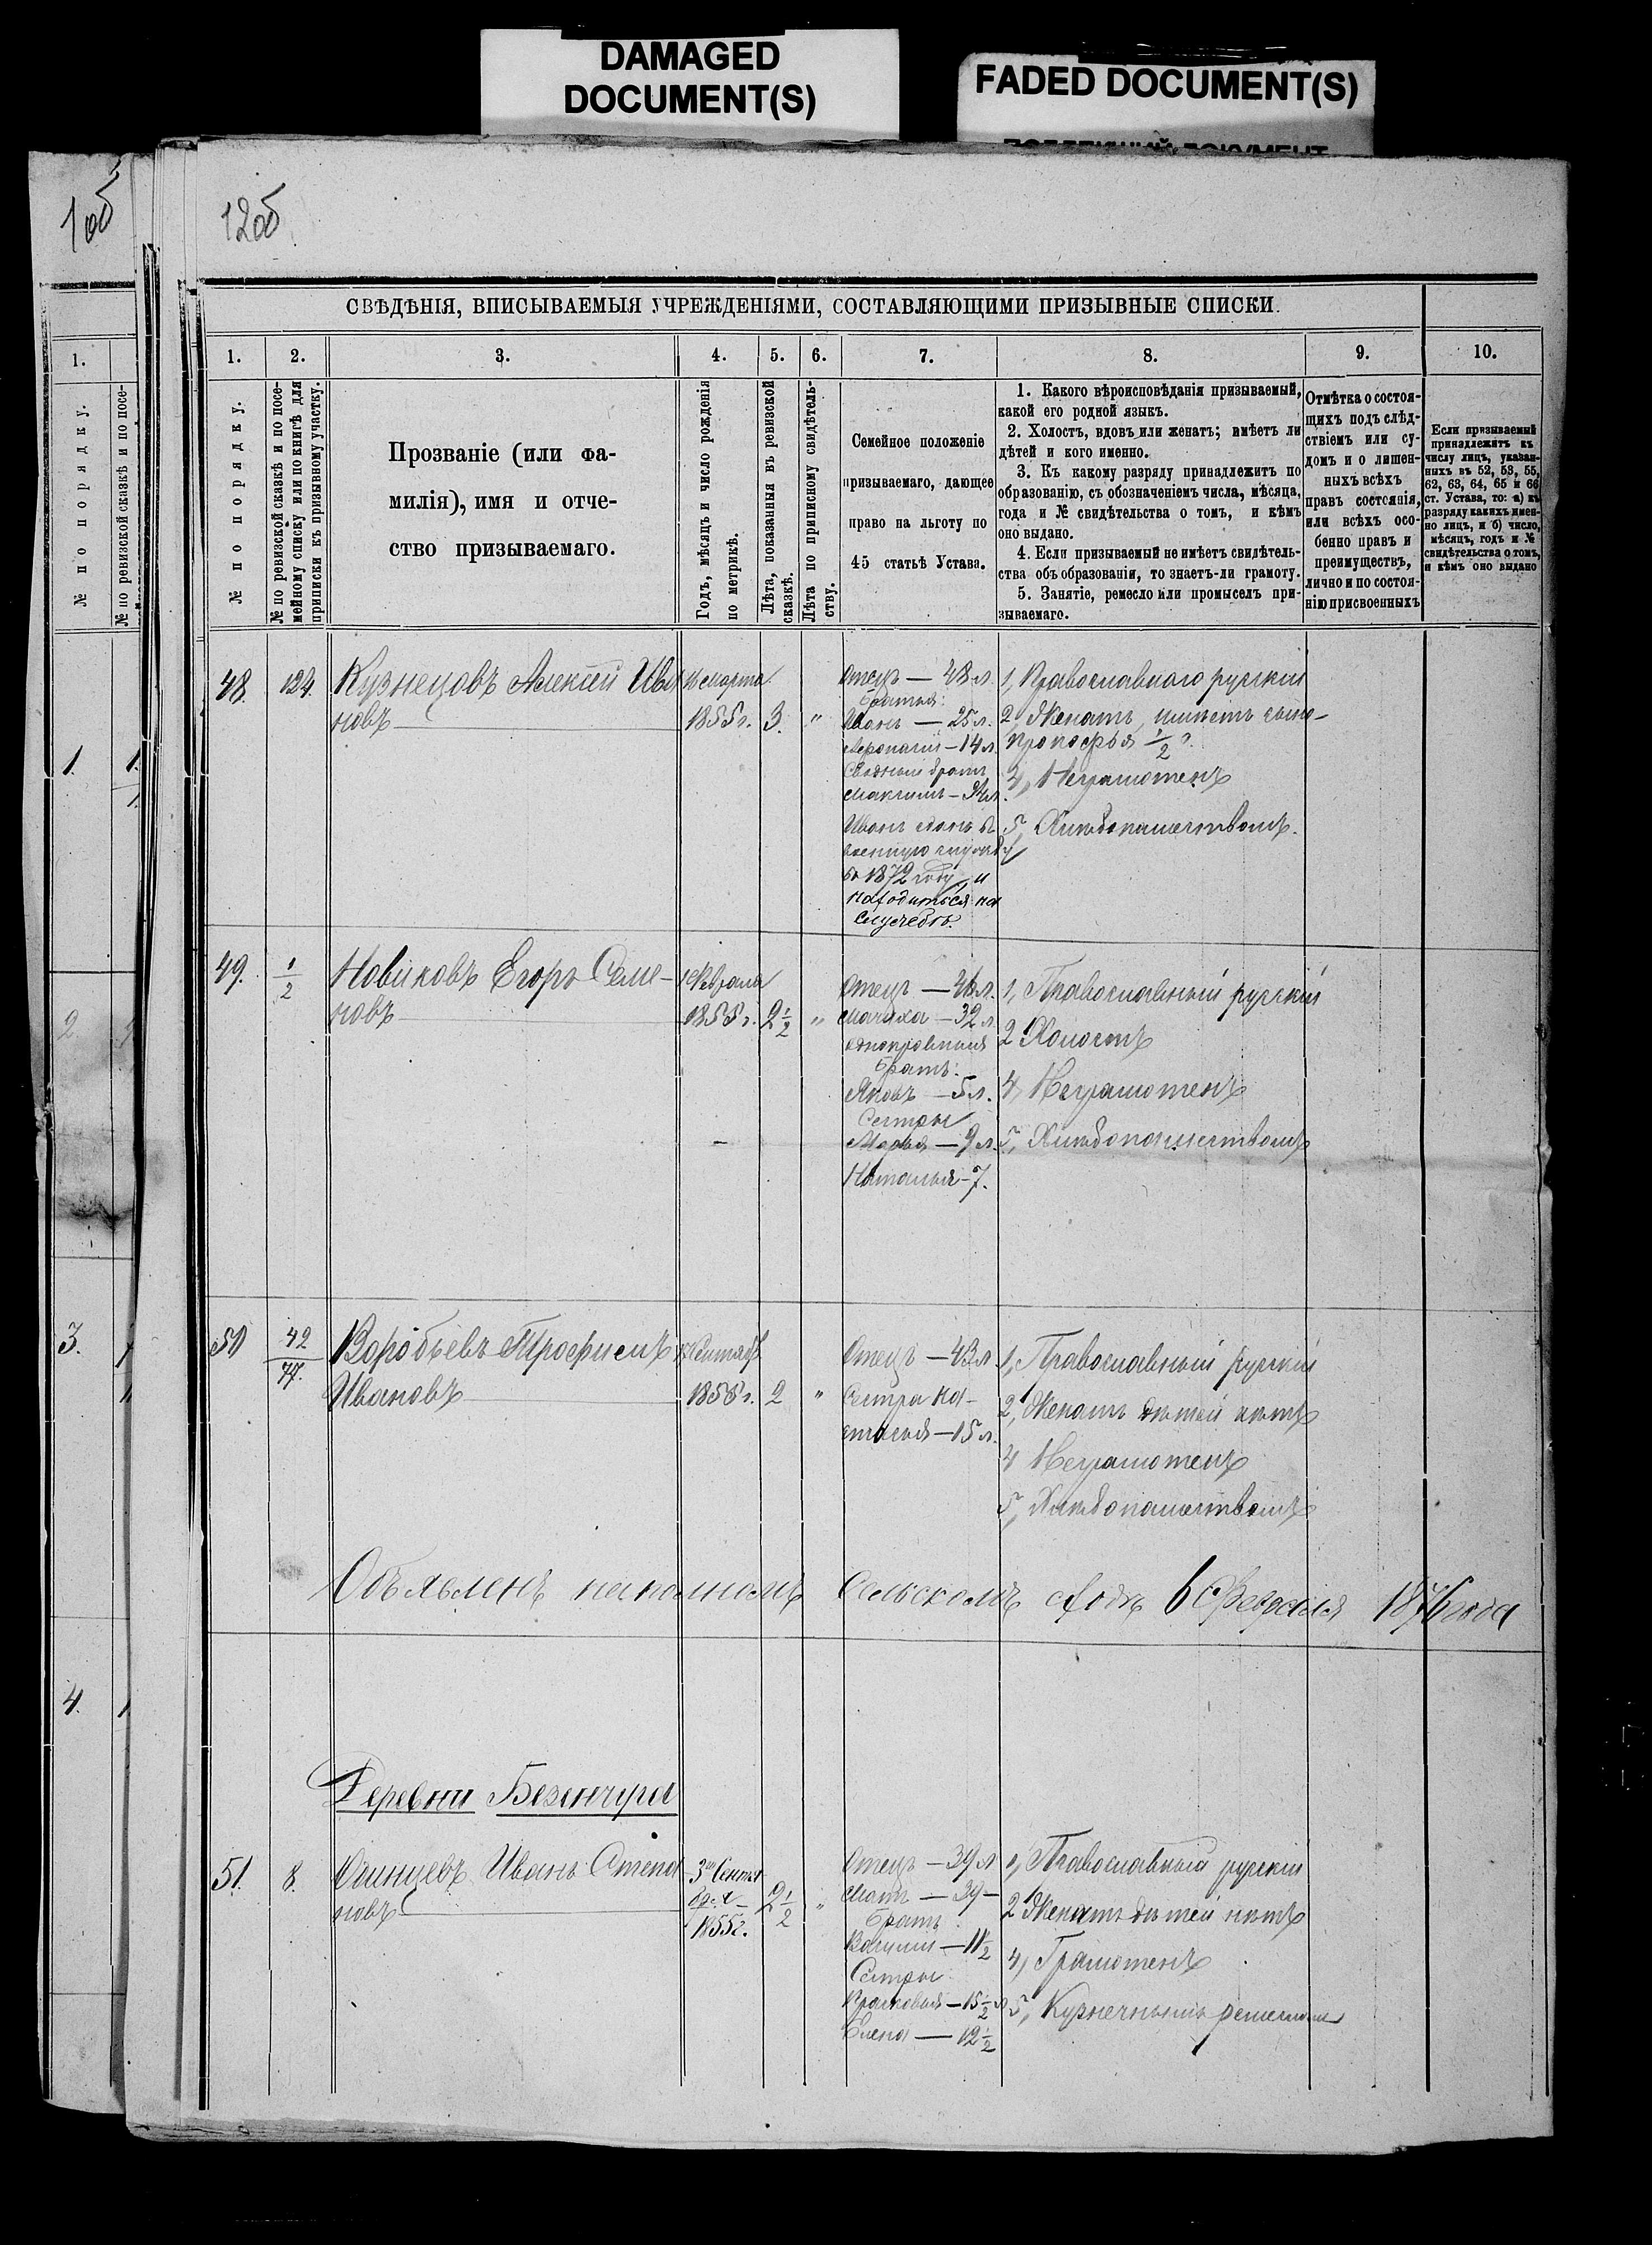 DAMAGED
DOCUMENT(S)
FADED DOCUMENT(S)
1об
12об
СВѢДѢНІЯ, ВПИСЫВАЕМЫЯ УЧРЕЖДЕНІЯМИ, СОСТАВЛЯЮЩИМИ ПРИЗЫВНЫЕ СПИСКИ.
1.
2.
3.
4.
5.
6.
7.
8.
9.
10.
№ по порядку.
№ по ревизской сказкѣ и по посе-
мейному списку или по книгѣ для
приписки къ призывному участку.
Прозваніе (или фа-
милія), имя и отче-
ство призываемаго.
Годъ, мѣсяцъ и число рожденія
по метрикѣ.
Лѣта, показанныя въ ревизской
сказкѣ.
Лѣта по приписному свидѣтель-
ству.
Семейное положеніе
призываемаго, дающее
право на льготу по
45 статьѣ Устава.
1. Какого вѣроисповѣданія призываемый,
какой его родной языкъ.
2. Холостъ, вдовъ или женатъ; имѣетъ ли
дѣтей и кого именно.
3. Къ какому разряду принадлежитъ по
образованію, съ обозначеніемъ числа, мѣсяца,
года и № свидѣтельства о томъ, и кѣмъ
оно выдано.
4. Если призываемый не имѣетъ свидѣтель-
ства объ образованіи, то знаетъ-ли грамоту.
5. Занятіе, ремесло или промыселъ при-
зываемаго.
Отмѣтка о состоя-
щихъ подъ слѣд-
ствіемъ или су-
домъ и о лишен-
ныхъ всѣхъ
правъ состоянія,
или всѣхъ осо-
бенно правъ и
преимуществъ,
лично и по состоя-
нію присвоенныхъ
Если призываемый
принадлежитъ къ
числу лицъ, указан-
ныхъ въ 52, 53, 55,
62, 63, 64, 65 и 66
ст. Устава, то: а) къ
разряду какихъ имен-
но лицъ, и б) число,
мѣсяцъ, годъ и №
свидѣтельства о томъ,
и кѣмъ оно выдано
1.
№ по порядку.
№ по ревизской сказкѣ и по посе-
1.
2
3.
4.
48. 124. Кузнецовъ Алексѣй Ива
новъ
марта
1855 г. 3. "
Отецъ — 48 л.
Братья:
Иванъ — 25 л.
— 14 л.
Сводный братъ
Максимъ —
Иванъ сданъ въ
военную службу
въ 1872 году и
находиться на
службѣ.
1, Православнаго русскій
2, Женатъ, имѣетъ сына
1/2
4, Неграмотенъ
5, Хлѣбопашествомъ.
49. 1/2 Новиковъ Егоръ Семе-
новъ
Февраля
1855 г. 2 1/2 "
Отецъ — 46 л.
Мачиха — 32 л
Братъ:
Яковъ — 5 л.
Сестры
Марья — 9 л.
Наталья — 7.
1, Православный русскій
2 Холостъ
4, Неграмотенъ
5, Хлѣбопашествомъ
50 42/77. Воробьевъ Трофимъ
Ивановъ
Сентяб
1855 г. 2 "
Отецъ — 43 л
Сестра На-
стасья — 15 л.
1, Православный русскій
2, Женатъ дѣтей нѣтъ
4 Неграмотенъ
5, Хлѣбопашествомъ
Объявленъ на полномъ Сельскомъ сходѣ 6 Февраля 1876 года
Деревни Безенчука
51. 8. Иванъ Степа
новъ
3го Сентя-
бря
1855 г.
2 1/2 "
Отецъ — 39 л
Мать — 39 —
Братъ
Василій — 11 1/2
Сестры
Прасковья — 15 1/2 л
Елена — 12 1/2
1, Православный русскій
2 Женатъ дѣтей нѣтъ
4, Грамотенъ
5, Кузнечнымъ ремесломъ